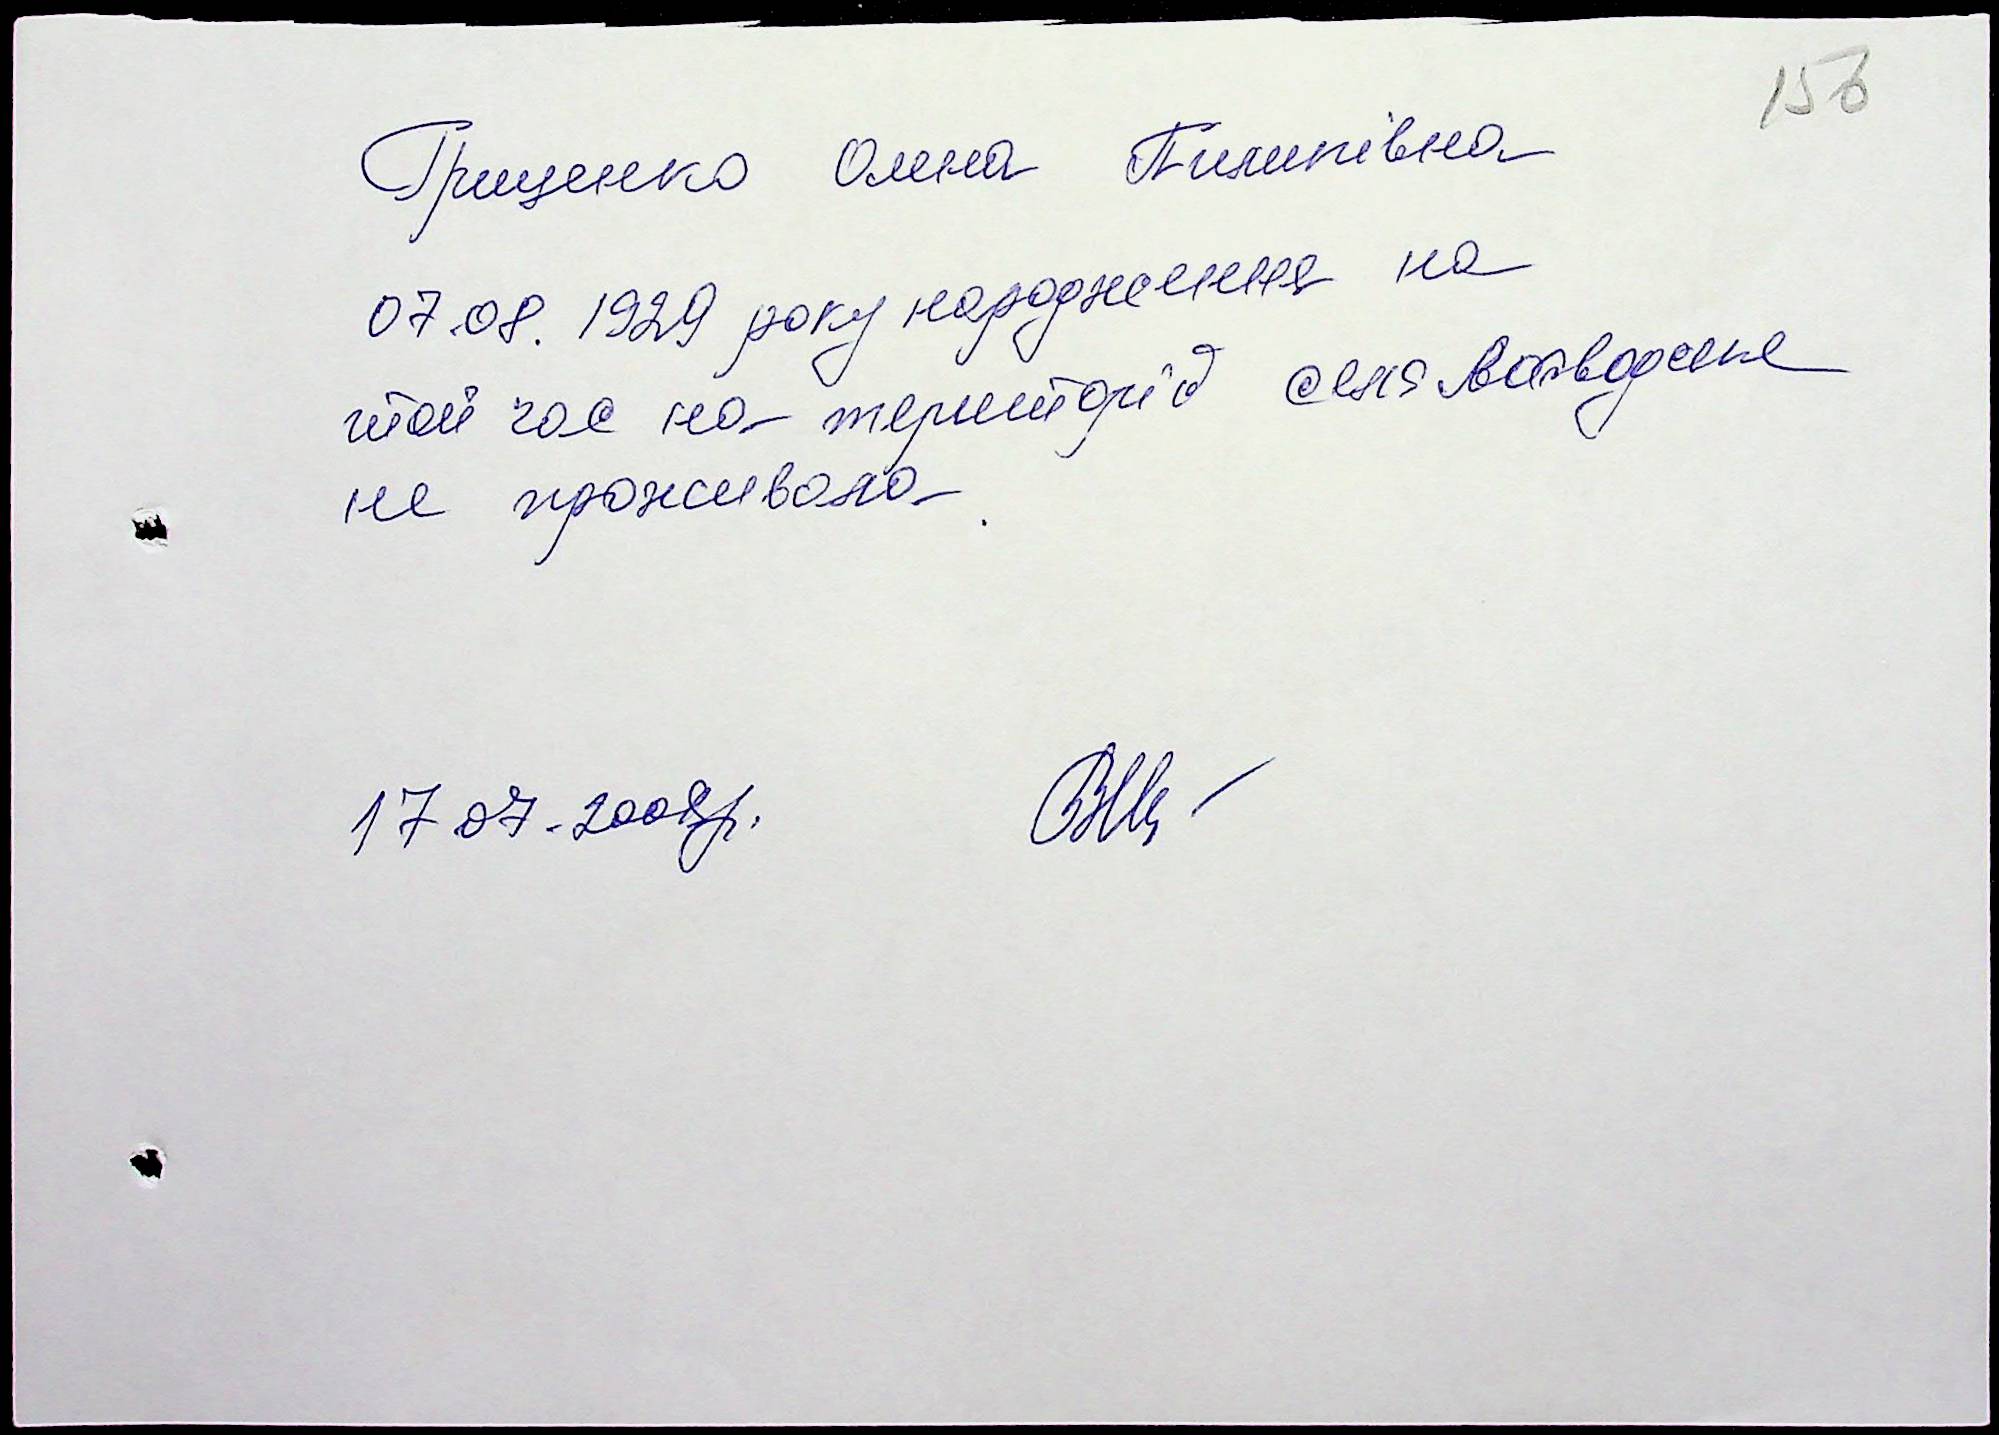 156
Грищенко Олена Пилипівна
07.08.1929 року народження на
той час на території села Воєводське
не проживала.
17.07.2008р.